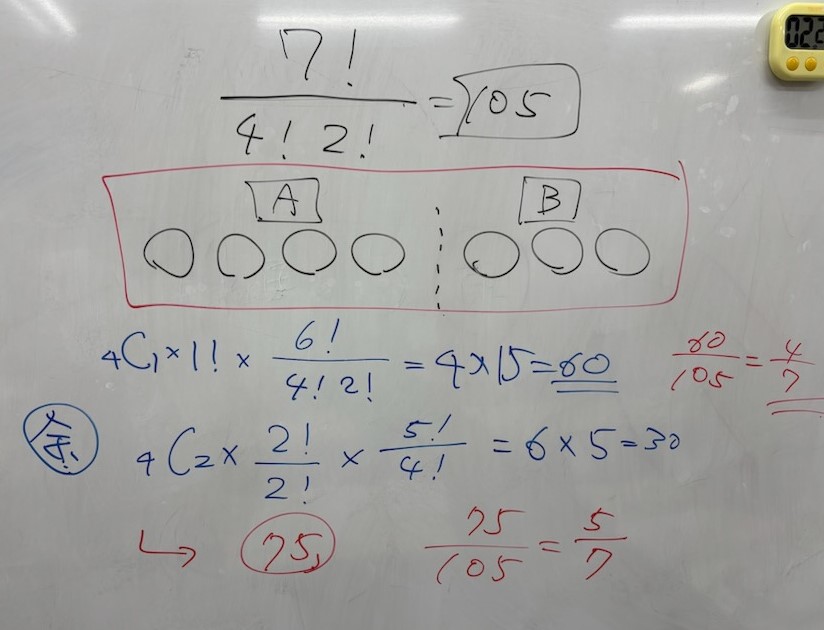 7! / 4! 2! = 105
A B
₄C₁ × 1! × 6! / 4! 2! = 4 × 15 = 60
60 / 105 = 4 / 7
余 ₄C₂ × 2! / 2! × 5! / 4! = 6 × 5 = 30
↳ 75 75 / 105 = 5 / 7